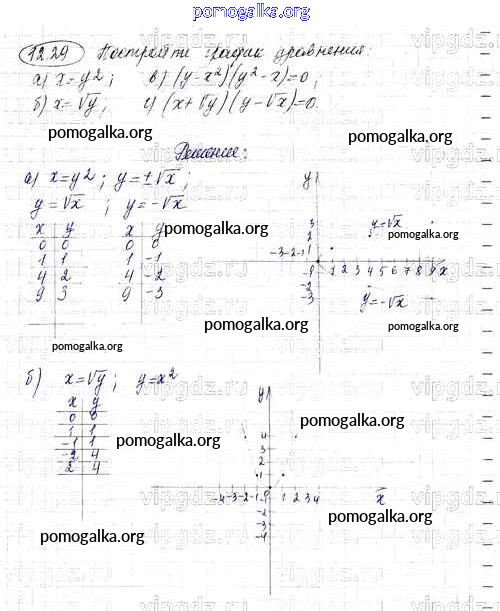 pomogalka.org
12.29 Постройте график уравнения:
а) x=y²; в) (y-x²)(y²-x)=0;
б) x=√y; г) (x+√y)(y-√x)=0.
pomogalka.org pomogalka.org
Решение:
а) x=y²; y=±√x;
y=√x; y=-√x
x y x y
0 0 0 0
1 1 1 -1
4 2 4 -2
9 3 9 -3
y
3
2
1
-3 -2 -1
1 2 3 4 5 6 7 8 9 x
-1
-2
-3
y=√x
y=-√x
pomogalka.org
pomogalka.org
pomogalka.org
pomogalka.org
б) x=√y; y=x²
x y
0 0
1 1
-1 1
-2 4
2 4
y
4
3
2
1
-4 -3 -2 -1 0 1 2 3 4 x
-1
-2
-3
-4
pomogalka.org
pomogalka.org
pomogalka.org
pomogalka.org
vipgdz.ru